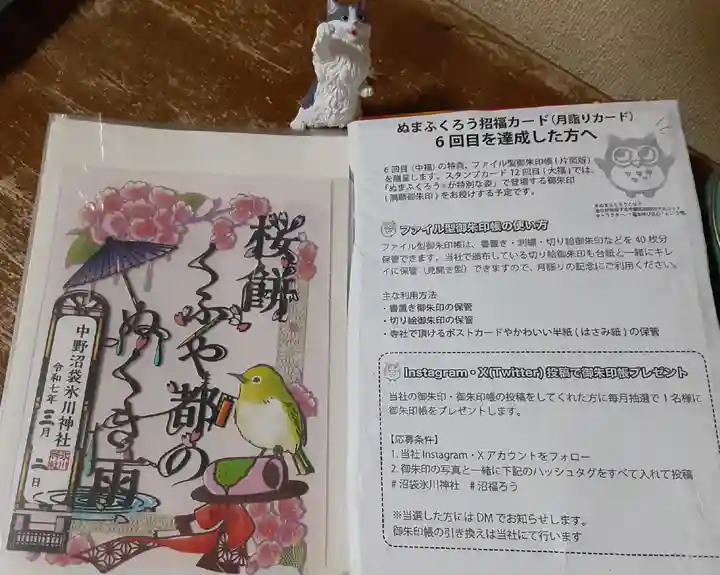 桜餅
くふや都の
ぬくき雨
中野沼袋氷川神社
令和七年三月二日
ぬまふくろう招福カード(月詣りカード)
6回目を達成した方へ
6回目(中福)の特典、ファイル型御朱印帳(片面版)
を贈呈します。スタンプカード12回目(大福)では、
「ぬまふくろう®が特別な姿」で登場する御朱印
(満願御朱印)をお授けする予定です。
ファイル型御朱印帳の使い方
ファイル型御朱印帳は、書置き・刺繍・切り絵御朱印などを40枚分
保管できます。当社で頒布している切り絵御朱印も台紙と一緒にキレ
イに保管(見開き型)できますので、月詣りの記念にご利用ください。
主な利用方法
・書置き御朱印の保管
・切り絵御朱印の保管
・寺社で頂けるポストカードやかわいい半紙(はさみ紙)の保管
Instagram・X(Twitter)投稿で御朱印帳プレゼント
当社の御朱印・御朱印帳の投稿をしてくれた方に毎月抽選で1名様に
御朱印帳をプレゼントします。
【応募条件】
1. 当社Instagram・Xアカウントをフォロー
2. 御朱印の写真と一緒に下記のハッシュタグをすべて入れて投稿
#沼袋氷川神社 #沼福ろう
※当選した方にはDMでお知らせします。
御朱印帳の引き換えは当社にて行います